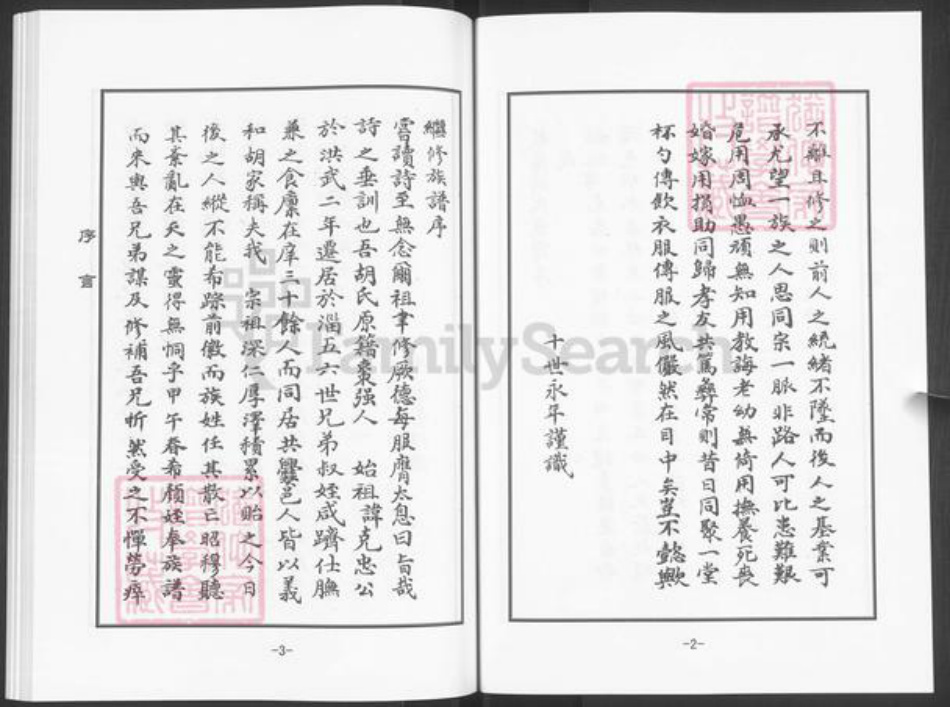 不離且修之則前人之統緒不墜而後人之基業可
承尤望一族之人思同宗一脈非路人可比患難艱
危用周恤愚頑無知用教誨老幼無倚用撫養死喪
婚嫁用捐助同歸孝友共篤彝常則昔日同聚一堂
杯勺傳飲衣服傳服之風儼然在目中矣豈不懿歟
十世永年謹識
-2-
繼修族譜序
嘗讀詩至無念爾祖聿修厥德每服膺太息曰旨哉
詩之垂訓也吾胡氏原籍棗强人 始祖諱克忠公
於洪武二年遷居於淄五六世兄弟叔姪咸躋仕膴
兼之食廩在庠三十餘人而同居共爨邑人皆以義
和胡家稱夫我 宗祖深仁厚澤積累以貽之今日
後之人縱不能希踪前徽而族姓任其散亡昭穆聽
其紊亂在天之靈得無恫乎甲午春希顏姪奉族譜
而來與吾兄弟謀及修補吾兄忻然受之不憚勞瘁
序言
-3-
FamilySearch